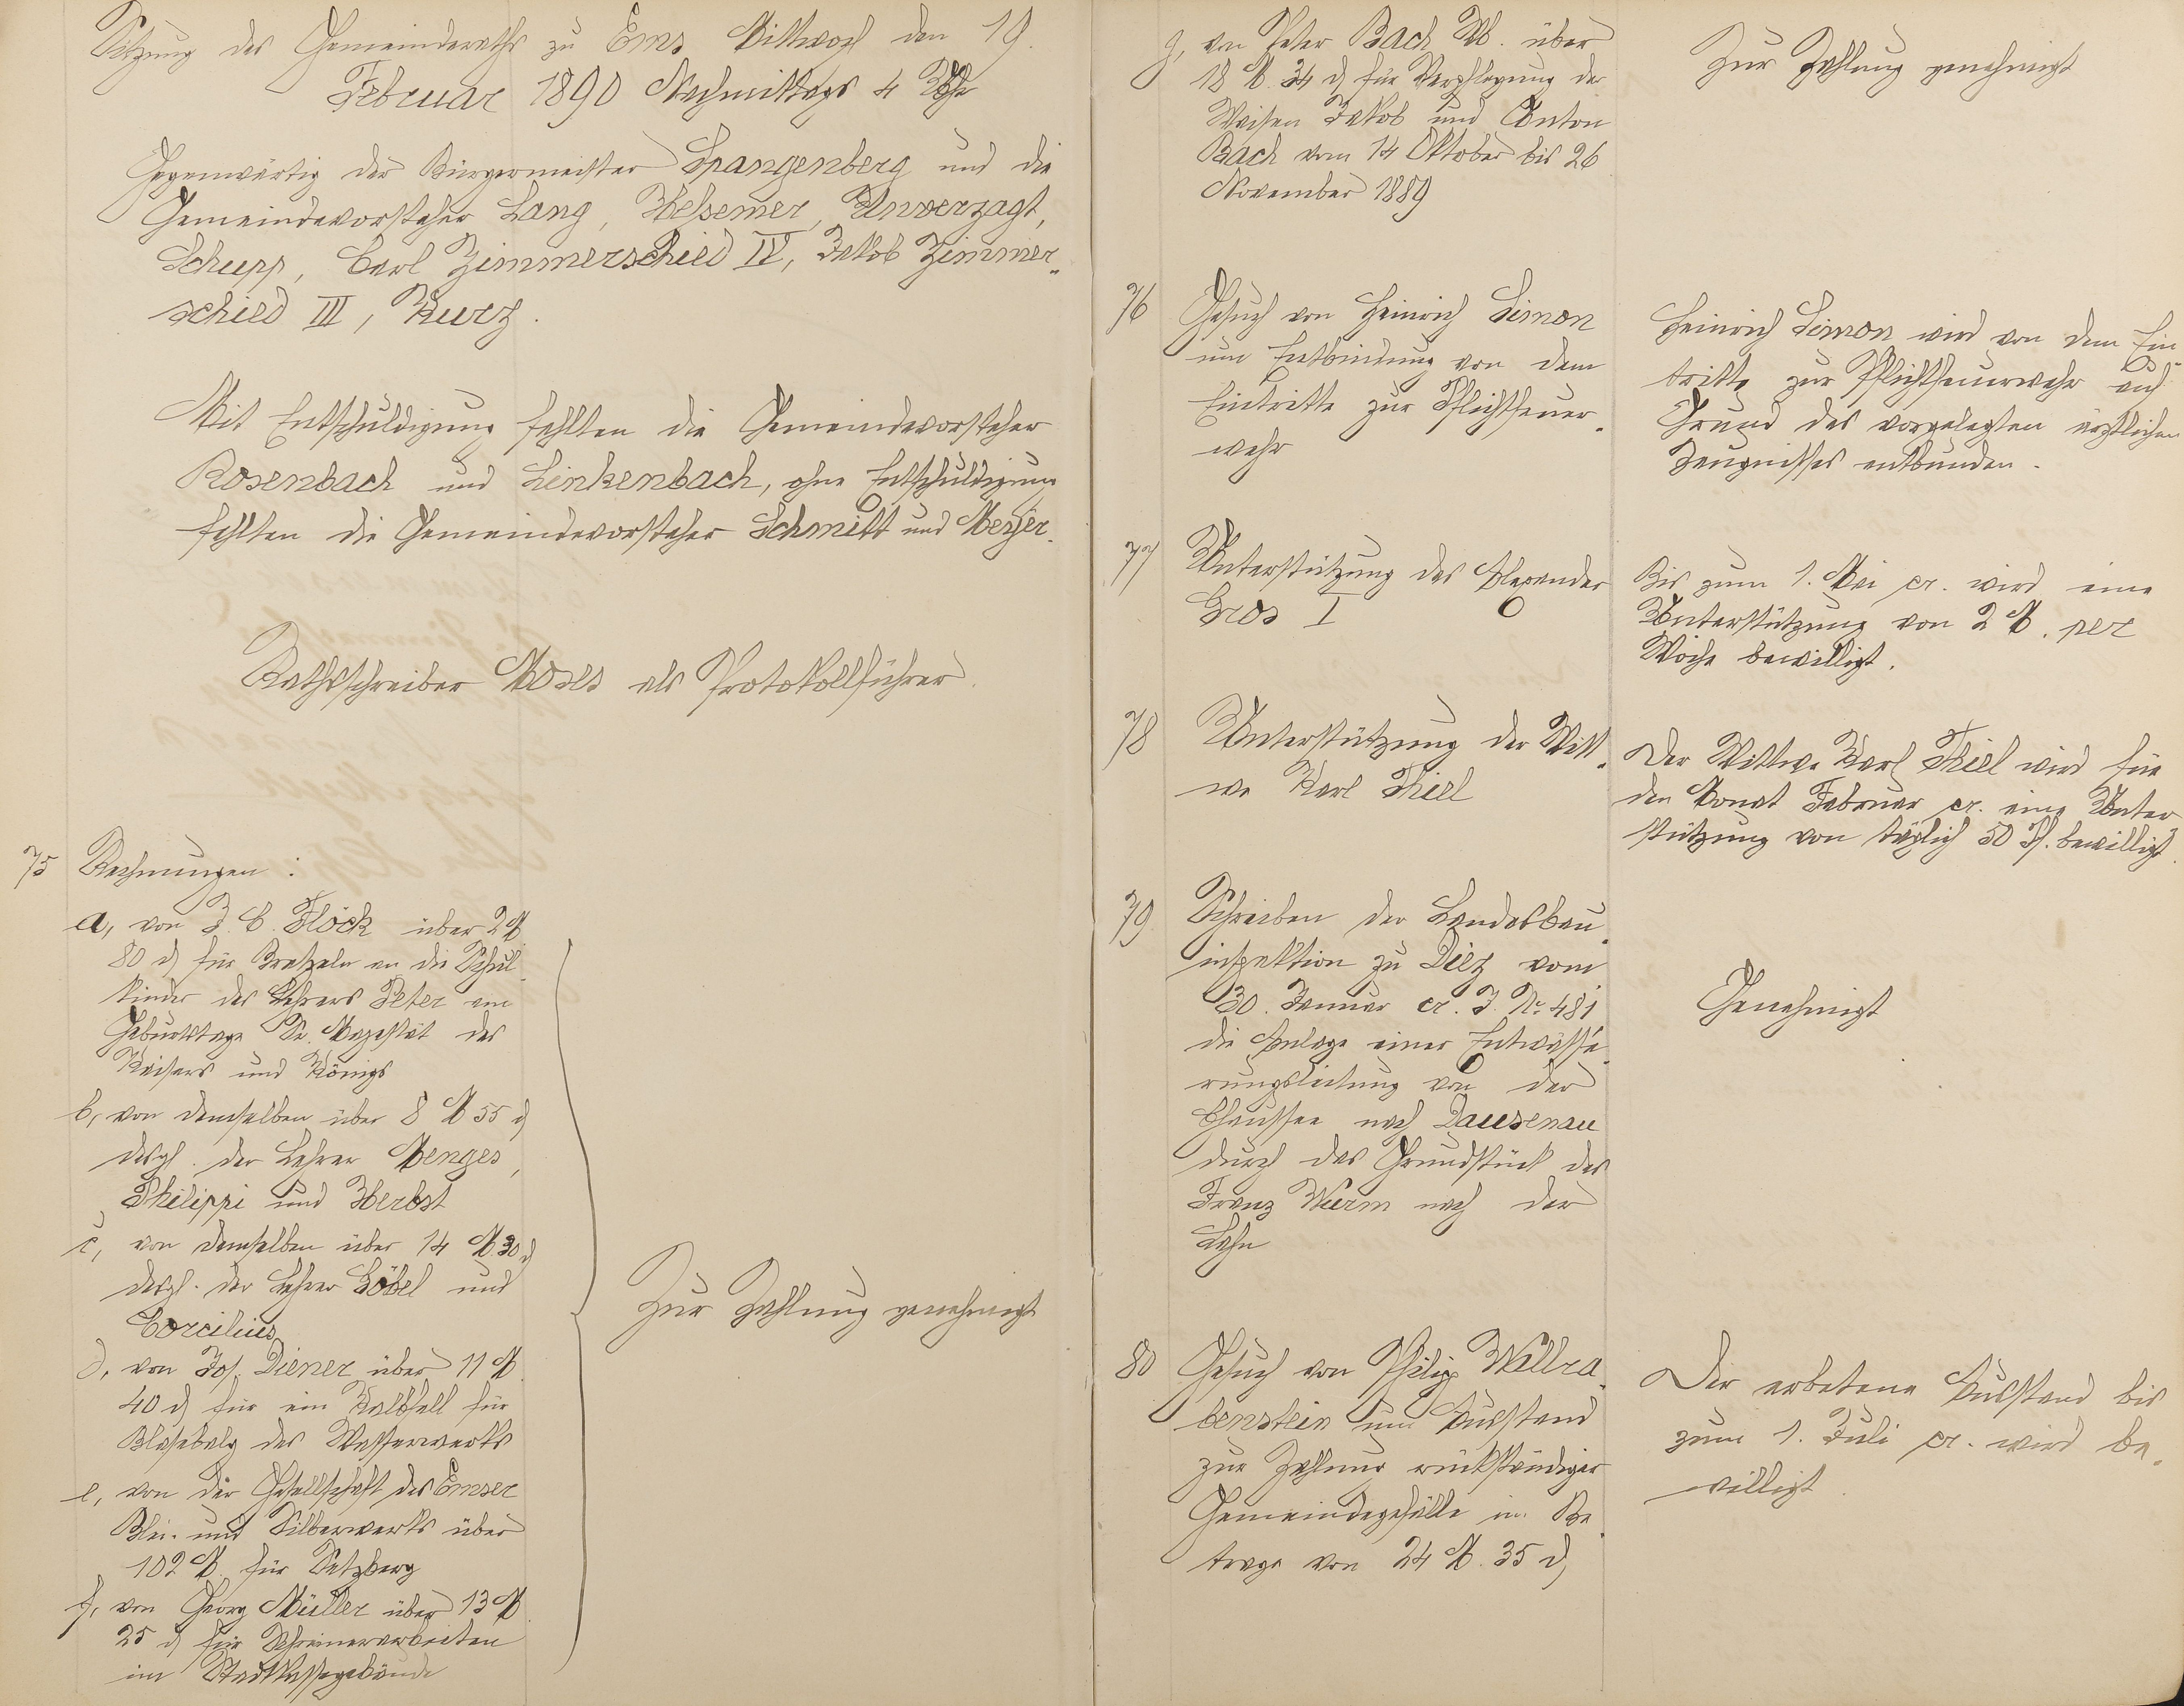 Sitzung des Gemeinderaths zu Ems Mittwoch den 19.
Februar 1890 Nachmittags 4 Uhr
Gegenwärtig der Bürgermeister Spangenberg und die
Gemeindevorsteher Lang, Helsemer, Unverzagt,
Schupp, Carl Zimmerschied IV, Jakob Zimmer-
schied III, Kurz.
Mit Entschuldigung fehlten die Gemeindevorsteher
Rosenbach und Linkenbach, ohne Entschuldigung
fehlten die Gemeindevorsteher Schmitt und Meyer.
Rathsschreiber Moses als Protokollführer.
75 Rechnungen:
a, von J. C. Flöck über 2 M
80 d für Bretzeln an die Schul-
kinder des Lehrers Peter am
Geburtstage Sr. Majestät des
Kaisers und Königs
b, von demselben über 8 M 55 d
desgl. der Lehrer Menges,
Philippi und Herbst
c, von demselben über 14 M. 30 d
desgl. der Lehrer Göbel und
Corcilius
d, von Jos. Diener über 11 M.
40 d für ein Kalbfell für
Blasebalg des Wasserwerks
e, von der Gesellschaft des Emser
Blei- und Silberwerks über
102 M. für Setzberg
f, von Georg Müller über 13 M.
25 d für Schreinerarbeiten
im Stadtkassegebäude
Zur Zahlung genehmigt
g, von Peter Bach W. über
18 M. 34 d für Verpflegung der
Waisen Jakob und Anton
Bach vom 14 Oktober bis 26
November 1889
Zur Zahlung genehmigt
76 Gesuch von Heinrich Simon
um Entbindung von dem
Eintritte zur Pflichtfeuer-
wehr
Heinrich Simon wird von dem Ein-
tritte zur Pflichtfeuerwehr auf
Grund des vorgelegten ärztlichen
Zeugnisses entbunden.
77 Unterstützung des Alexander
Gros I
Bis zum 1. Mai cr. wird eine
Unterstützung von 2 M. per
Woche bewilligt.
78 Unterstützung der Witt-
we Karl Thiel
Der Wittwe Karl Thiel wird für
den Monat Februar cr. eine Unter-
stützung von täglich 50 Pf. bewilligt.
79 Schreiben der Landesbau-
inspektion zu Diez vom
30. Januar cr. J. Nr 481
die Anlage einer Entwässe-
rungsleitung von der
Chaussee nach Dausenau
durch das Grundstück des
Franz Wurm nach der
Lahn
Genehmigt
80 Gesuch von Philipp Wallra-
benstein um Ausstand
zur Zahlung rückständiger
Gemeindegefälle im Be-
trage von 24 M. 35 d,
Der erbetene Ausstand bis
zum 1. Juli cr. wird be-
willigt.